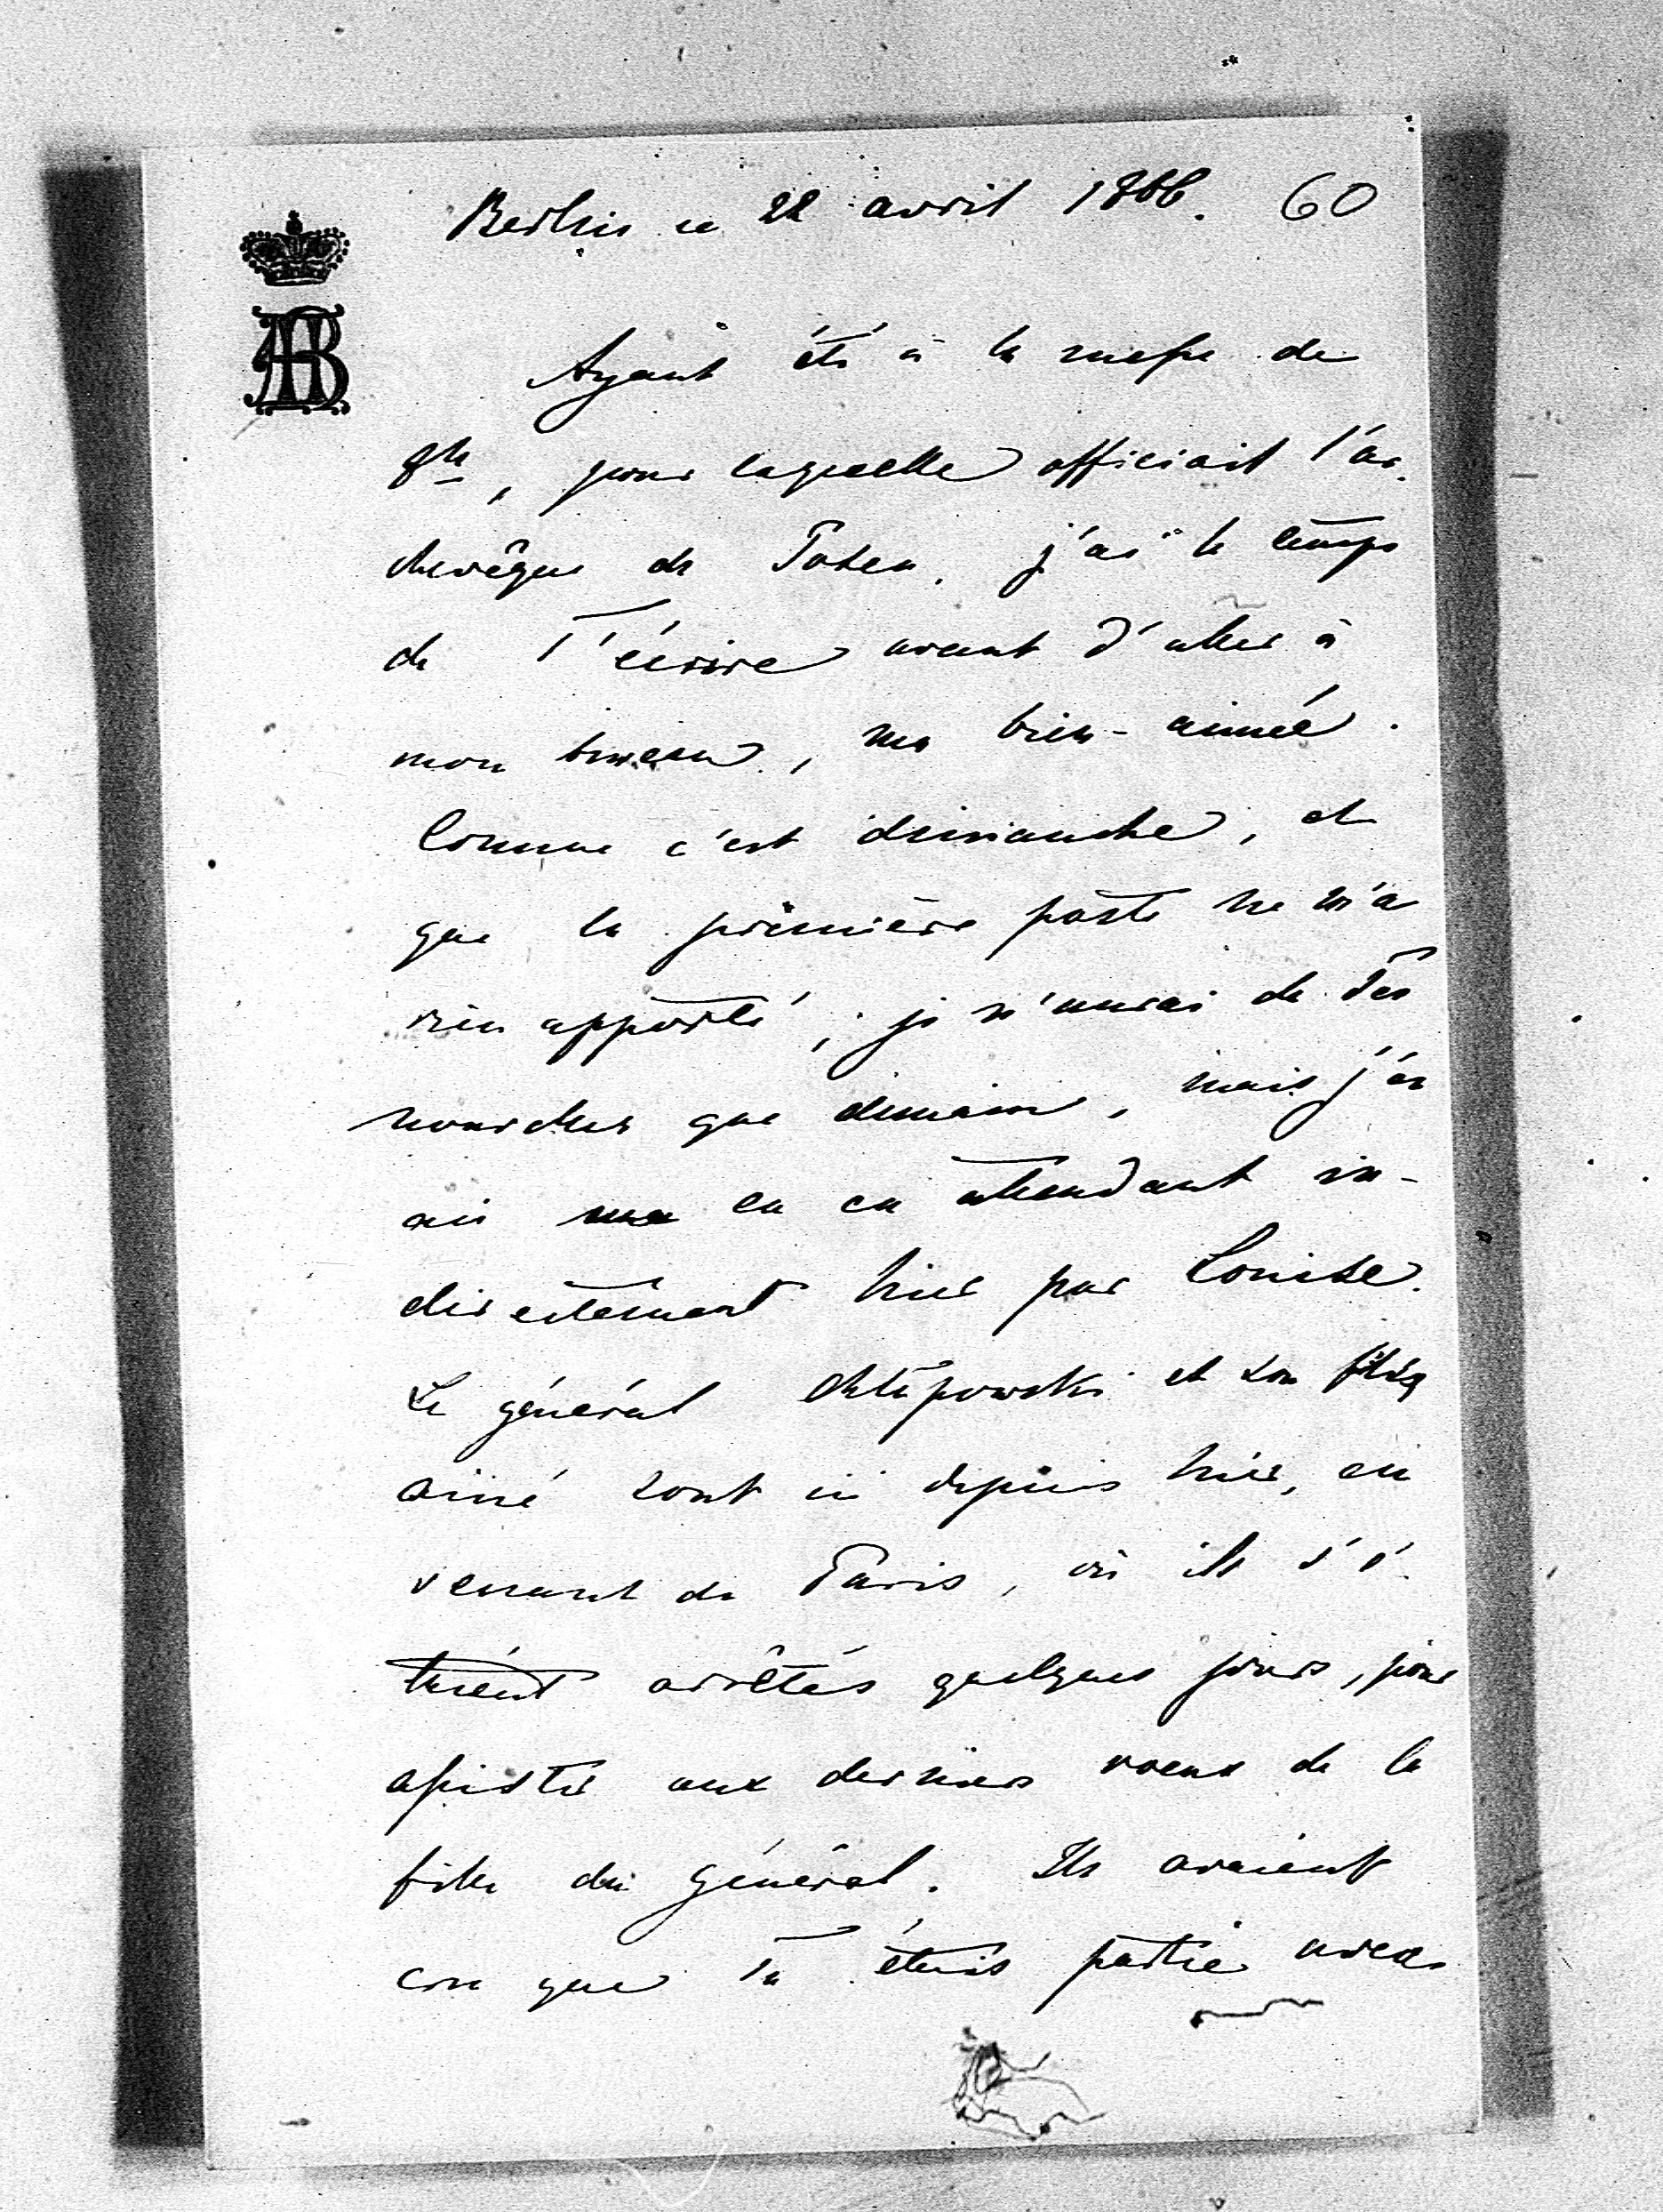 Berlin ce 22 avril 1866. 60
AB
Ayant été à la messe de
8h, pour laquelle officiait l'ar-
chevêque de Posen, j'ai le temps
de T'écrire avant d'aller à
mon bureau, ma bien-aimée.
Comme c'est dimanche, et
que la première poste ne m'a
rien apporté, je n'aurai de Tes
nouvelles que demain, mais j'en
ai eu en attendant in-
directement hier par Louise.
Le général Chlapowski et son fils
ainé sont ici depuis hier, en
venant de Paris, où ils s'é-
taient arrêtés quelques jours, pour
assister aux derniers voeux de la
fille du général. Ils avaient
cru que Tu étais partie avec